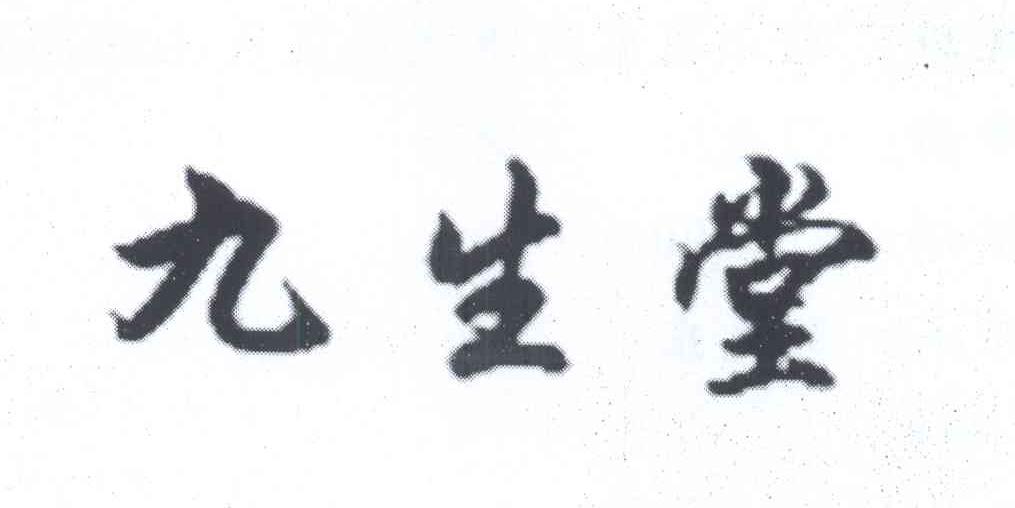 九生堂